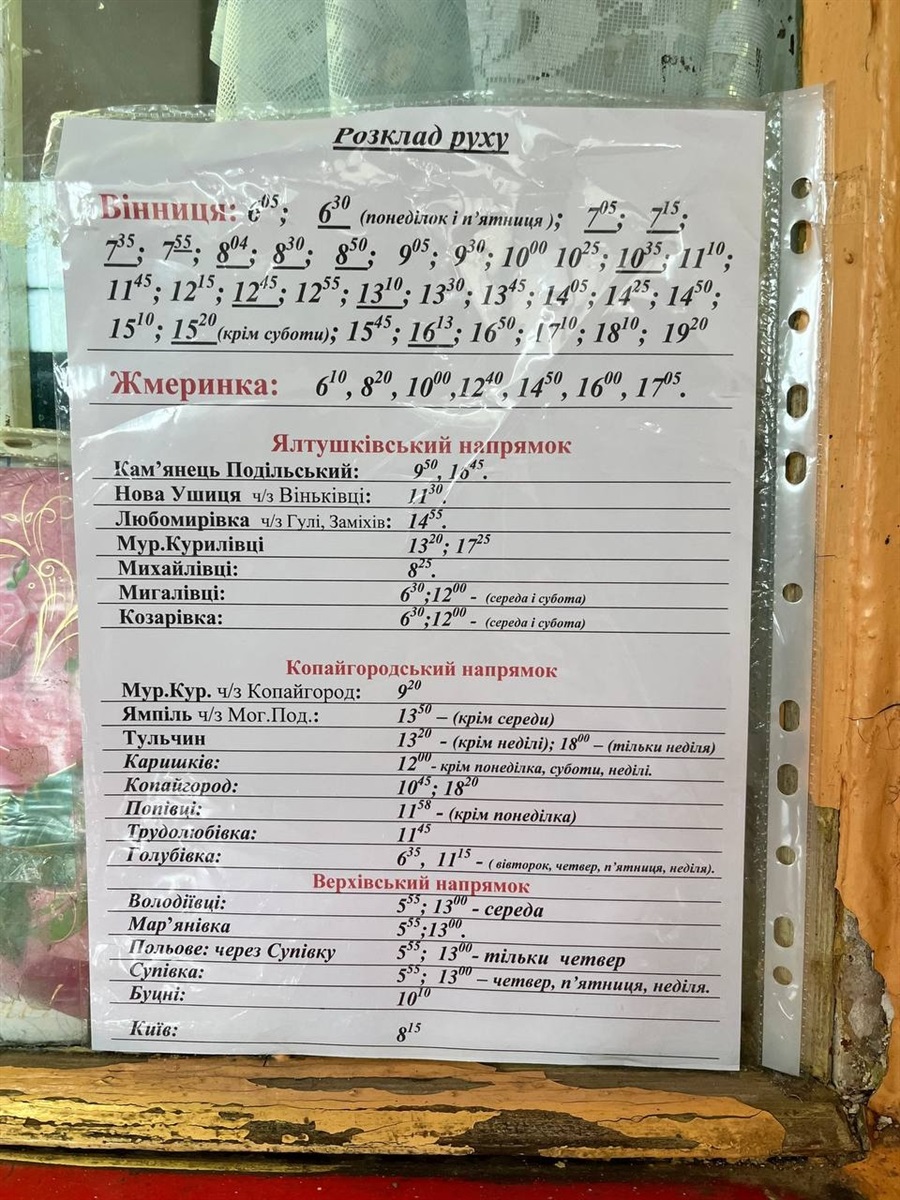 Розклад руху
Вінниця: 6⁰⁵; 6³⁰ (понеділок і п’ятниця); 7⁰⁵; 7¹⁵;
7³⁵; 7⁵⁵; 8⁰⁴; 8³⁰; 8⁵⁰; 9⁰⁵; 9³⁰; 10⁰⁰ 10²⁵; 10³⁵; 11¹⁰;
11⁴⁵; 12¹⁵; 12⁴⁵; 12⁵⁵; 13¹⁰; 13³⁰; 13⁴⁵; 14⁰⁵; 14²⁵; 14⁵⁰;
15¹⁰; 15²⁰ (крім суботи); 15⁴⁵; 16¹³; 16⁵⁰; 17¹⁰; 18¹⁰; 19²⁰
Жмеринка: 6¹⁰, 8²⁰, 10⁰⁰, 12⁴⁰, 14⁵⁰, 16⁰⁰, 17⁰⁵.
Ялтушківський напрямок
Кам’янець Подільський: 9⁵⁰, 16⁴⁵.
Нова Ушиця ч/з Віньківці: 11³⁰.
Любомирівка ч/з Гулі, Заміхів: 14⁵⁵.
Мур.Курилівці 13²⁰; 17²⁵
Михайлівці: 8²⁵.
Мигалівці: 6³⁰;12⁰⁰ - (середа і субота)
Козарівка: 6³⁰;12⁰⁰ - (середа і субота)
Копайгородський напрямок
Мур.Кур. ч/з Копайгород: 9²⁰
Ямпіль ч/з Мог.Под.: 13⁵⁰ – (крім середи)
Тульчин 13²⁰ - (крім неділі); 18⁰⁰ – (тільки неділя)
Каришків: 12⁰⁰- крім понеділка, суботи, неділі.
Копайгород: 10⁴⁵; 18²⁰
Попівці: 11⁵⁸ - (крім понеділка)
Трудолюбівка: 11⁴⁵
Голубівка: 6³⁵, 11¹⁵ - ( вівторок, четвер, п’ятниця, неділя).
Верхівський напрямок
Володіївці: 5⁵⁵; 13⁰⁰ - середа
Мар’янівка 5⁵⁵;13⁰⁰.
Польове: через Супівку 5⁵⁵; 13⁰⁰- тільки четвер
Супівка: 5⁵⁵; 13⁰⁰ – четвер, п’ятниця, неділя.
Буцні: 10¹⁰
Київ: 8¹⁵